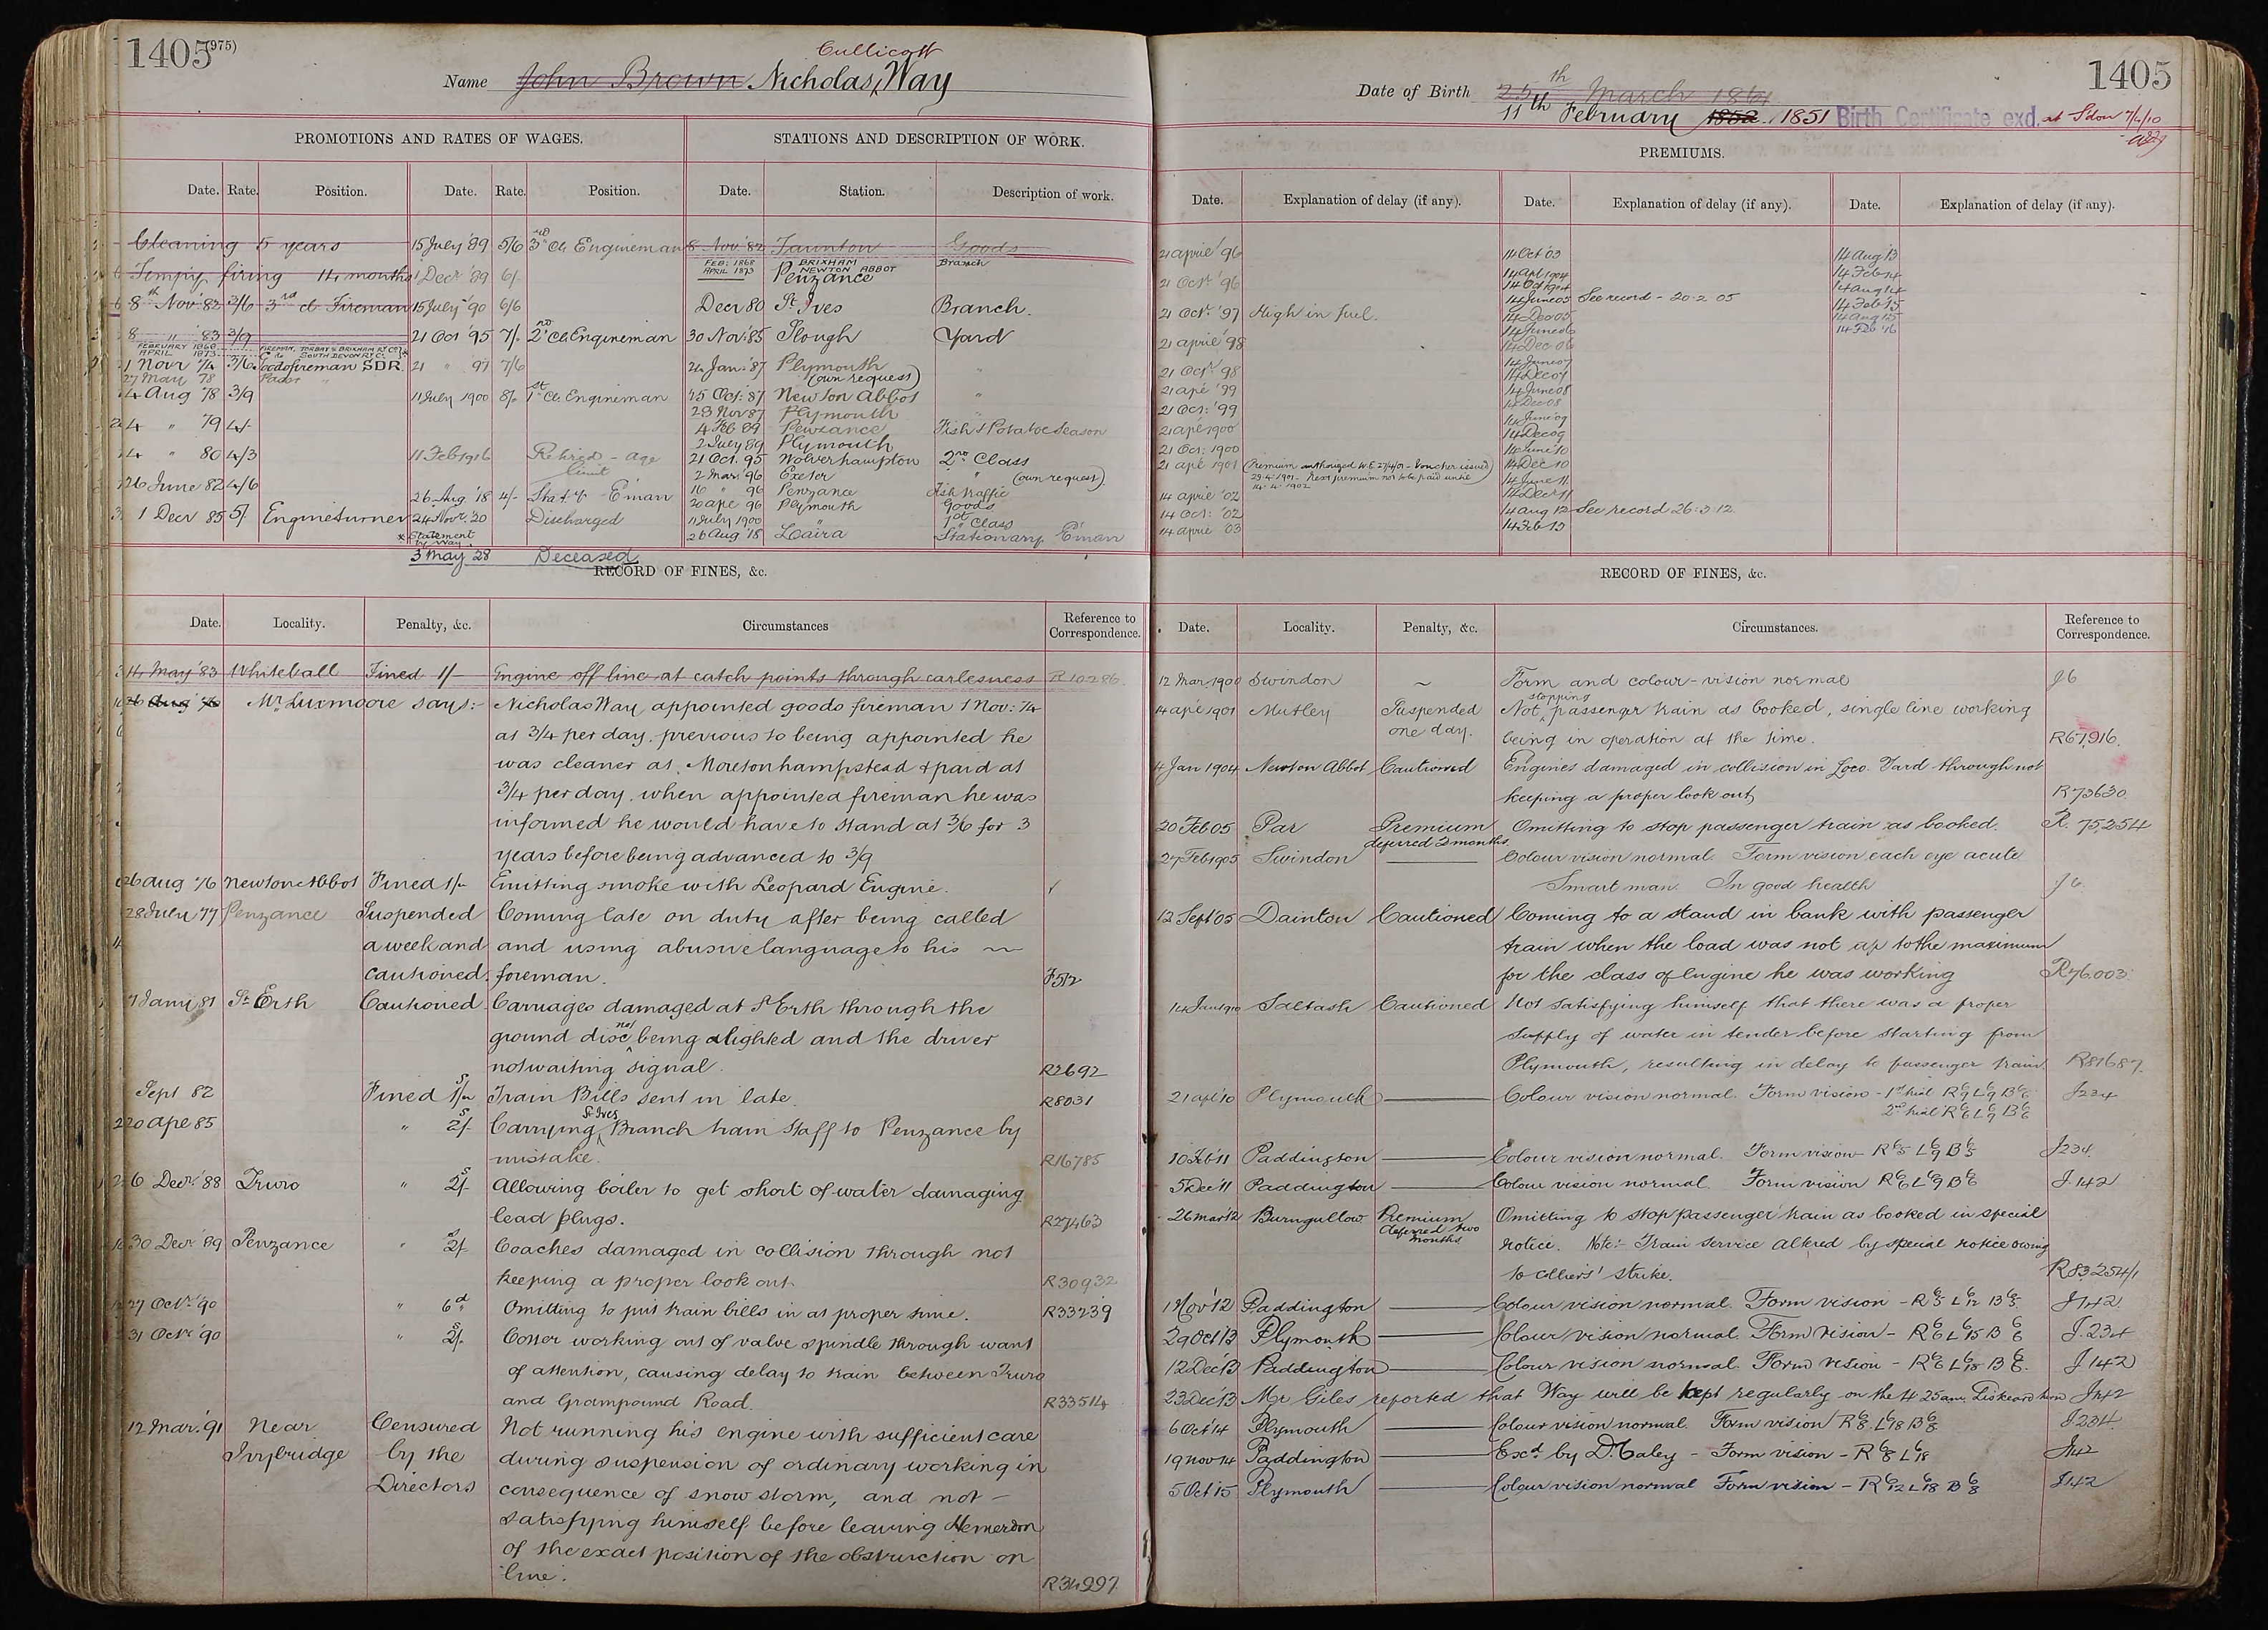 1405 (975)
Cullicott
Name John Brown Nicholas Way
PROMOTIONS AND RATES OF WAGES.
STATIONS AND DESCRIPTION OF WORK.
Date. Rate. Position. Date. Rate. Position. Date. Station. Description of work.
Cleaning 5 years 15 July '89 5/6 3rd Cl. Engineman 8 Nov. '82 Taunton Goods
Tempy firing 14 months 1 Decr '89 6/- FEB: 1868 BRIXHAM Branch
APRIL 1873 NEWTON ABBOT
Penzance
8th Nov. 82 3/6 3rd cl. Fireman 15 July '90 6/6 Decr 80 St Ives Branch.
8 " 83 3/9 21 Oct '95 7/- 2nd Cl. Engineman 30 Nov: 85 Slough Yard
FEBRUARY 1868 FIREMAN, TORBAY & BRIXHAM RY CO
APRIL 1873 SOUTH DEVON RY CO.
1 Novr 74 3/6 Goods fireman SDR. 21 " 97 7/6 24 Jan: '87 Plymouth "
27 May 78 Passr " (own request)
4 Aug '78 3/9 11 July 1900 8/- 1st Cl. Engineman 15 Oct: 87 Newton Abbot "
28 Nov 87 Plymouth "
4 " 79 4/- 4 Feb 89 Penzance Fish & Potatoe Season
2 July 89 Plymouth
4 " 80 4/3 11 Feb 1916 Retired - age limit 21 Oct. 95 Wolverhampton 2nd Class
2 Mar. 96 Exeter " (own request)
26 June 82 4/6 26 Aug '18 4/- Staty E'man 16 " 96 Penzance Fish traffic
20 ape 96 Plymouth Goods
1 Decr 85 5/- Engineturner 24 Novr '20 Discharged 11 July 1900 " 1st Class
* Statement by Way. 26 Aug '18 Laira Stationary E'man
3 May 28 Deceased
RECORD OF FINES, &c.
Date. Locality. Penalty, &c. Circumstances Reference to Correspondence.
14 May '83 Whiteball Fined 1/- Engine off line at catch points through carlesness R10286.
26 Aug 76 Mr Luxmoore says:- Nicholas Way appointed goods fireman 1 Nov: 74
at 3/4 per day. previous to being appointed he
was cleaner at Moretonhampstead & paid at
3/4 per day. when appointed fireman he was
informed he would have to stand at 3/6 for 3
years before being advanced to 3/9
26 Aug 76 Newton Abbot Fined 1/- Emitting smoke with Leopard Engine.
28 July 77 Penzance Suspended Coming late on duty after being called
a week and and using abusive language to his
cautioned. foreman. F512
7 Jany 81 St Erth Cautioned Carriages damaged at St Erth through the
ground disc not being alighted and the driver
not waiting signal. R2692
Sept 82 Fined 1s/- Train Bills sent in late. R8031
20 ape 85 " 2s/- Carrying St Ives Branch train staff to Penzance by
mistake. R16785
6 Decr '88 Truro " 2s/- Allowing boiler to get short of water damaging
lead plugs. R27463
30 Decr '89 Penzance " 2s/- Coaches damaged in collision through not
keeping a proper look out. R30932
27 Octr '90 " 6d Omitting to put train bills in at proper time. R33239
31 Octr '90 " 2s/- Cotter working out of valve spindle through want
of attention, causing delay to train between Truro
and Grampound Road. R33514
12 Mar. '91 Near Censured Not running his engine with sufficient care
Ivybridge by the during suspension of ordinary working in
Directors consequence of snow storm, and not -
satisfying himself before leaving Hemerdon
of the exact position of the obstruction on
line. R34997
1405
Date of Birth 25th March 1861
11th February 1852 1851 Birth Certificate exd. at Sdon 7/4/10
PREMIUMS.
Date. Explanation of delay (if any). Date. Explanation of delay (if any). Date. Explanation of delay (if any).
21 april '96 14 Oct '03 14 Aug '13
14 Apl 1904 14 Feb 14
21 Octr '96 14 Oct 1904 14 Aug 14
14 June 05 See record - 20-2-05 14 Feb '15
21 Octr '97 High in fuel. 14 Dec 05 14 Aug 15
14 June 06 14 Feb '16
21 april '98 14 Dec 06
14 June 07
21 Octr 98 14 Dec 07
21 ape '99 14 June 08
14 Dec 08
21 Oct: '99 14 June 09
21 ape 1900 14 Dec 09
21 Oct: 1900 14 June 10
21 ape 1901 (Premium authorized W.E 27/4/01 - Voucher issued 14 Dec 10
29.4.1901. Next premium not to be paid until 14 June 11
14.4.1902 14 Decr 11
14 april '02
14 Oct: '02 14 Aug 12 See record 26.3.12.
14 april '03 14 Feb 13
RECORD OF FINES, &c.
Date. Locality. Penalty, &c. Circumstances. Reference to Correspondence.
12 Mar. 1900 Swindon ~ Form and colour-vision normal J6
14 ape 1901 Mutley Suspended one day. Not stopping passenger train as booked, single line working
being in operation at the time. R67,916.
4 Jan 1904 Newton Abbot Cautioned Engines damaged in collision in Loco. Yard through not
keeping a proper look out, R73630.
20 Feb 05 Par Premium deferred 2 months. Omitting to stop passenger train as booked. R. 75,254
27 Feb 1905 Swindon Colour vision normal. Form vision each eye acute
Smart man. In good health J6.
12 Sept 05 Dainton Cautioned Coming to a stand in bank with passenger
train when the load was not up to the maximum
for the class of engine he was working R76.003.
14 Jan 1910 Saltash Cautioned Not satisfying himself that there was a proper
supply of water in tender before starting from
Plymouth, resulting in delay to passenger train. R81687.
21 apl '10 Plymouth Colour vision normal. Form vision - 1st trial R 6/9 L 6/9 B 6/6 J234
2nd trial R 6/6 L 6/9 B 6/6
10 Feb '11 Paddington Colour vision normal. Form vision - R 6/5 L 6/9 B 6/5 J234.
5 Dec '11 Paddington Colour vision normal. Form vision R 6/6 L 6/9 B 6/6 J 142
26 Mar '12 Burngullow Premium deferred two months Omitting to stop passenger train as booked in special
notice. Note:- Train service altered by special notice owing
to colliers' strike. R83254/1
1 Nov '12 Paddington Colour vision normal. Form vision - R 6/5 L 6/12 B 6/5. J142.
29 Oct 13 Plymouth Colour vision normal. Form vision - R 6/6 L 6/15 B 6/6 J.234
12 Dec '13 Paddington Colour vision normal. Form vision - R 6/6 L 6/18 B 6/6. J 142
23 Dec '13 Mr Giles reported that Way will be kept regularly on the 4 25am. Liskeard turn J142
6 Oct '14 Plymouth Colour vision normal. Form vision R 6/8. L 6/18 B 6/8. J.234.
19 Nov 14 Paddington Excd by D. Caley - Form vision - R 6/8 L 6/18 J142
5 Oct 15 Plymouth Colour vision normal Form vision - R 6/12 L 6/18 B 6/8 J142